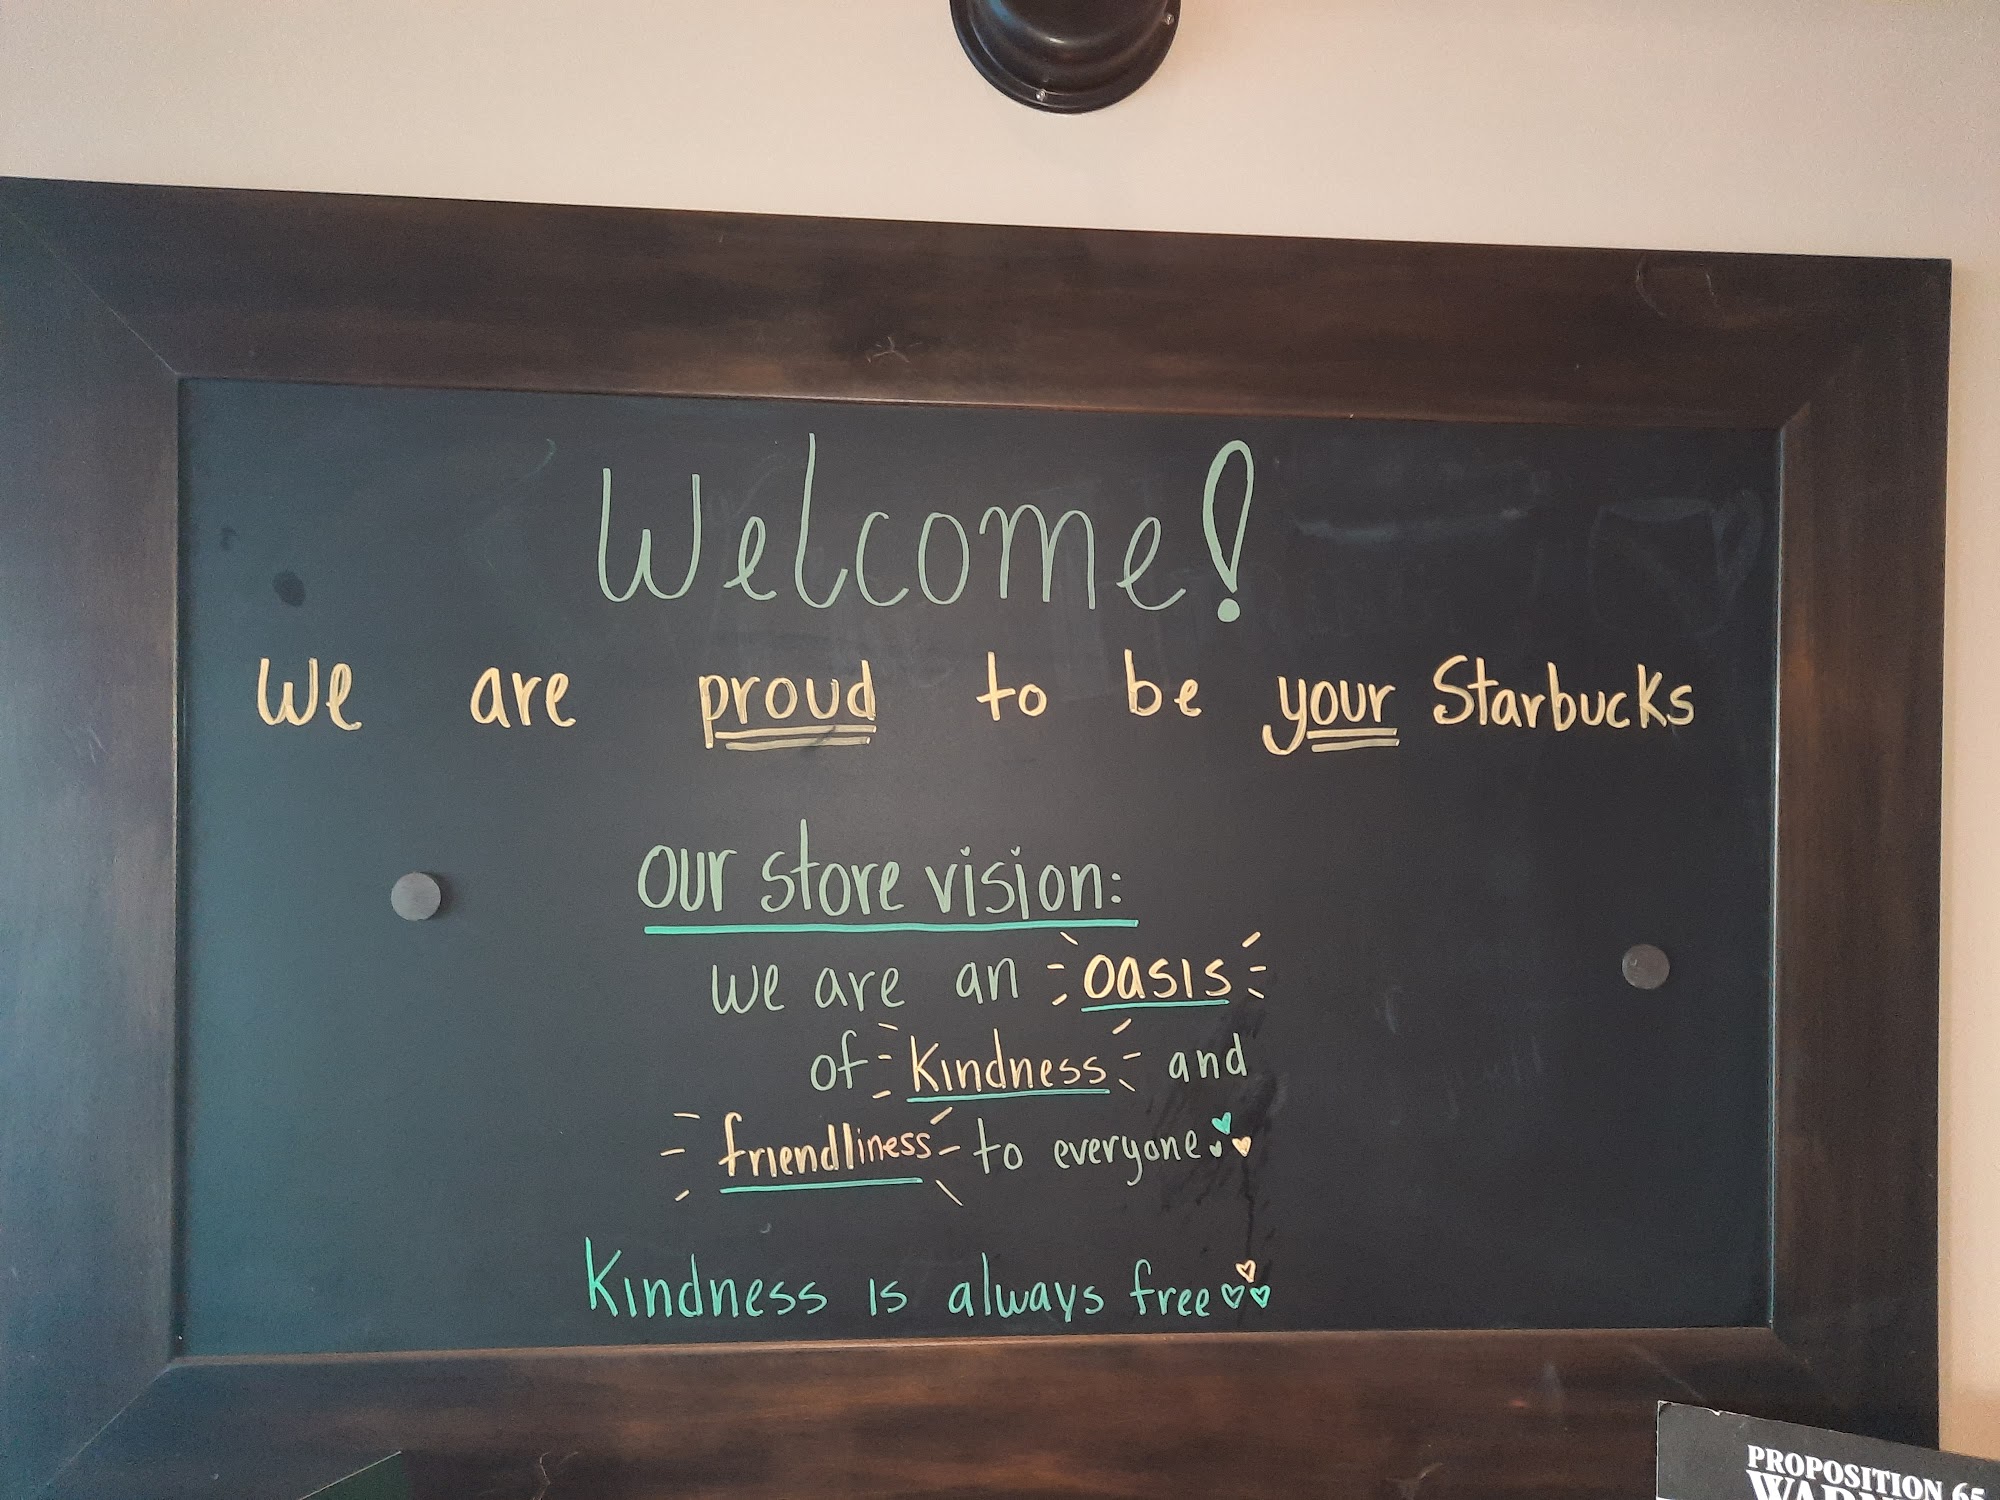 Welcome!
We are proud to be your Starbucks
our store vision:
we are an oasis
of Kindness and
friendliness to everyone
Kindness is always free
PROPOSITION 65